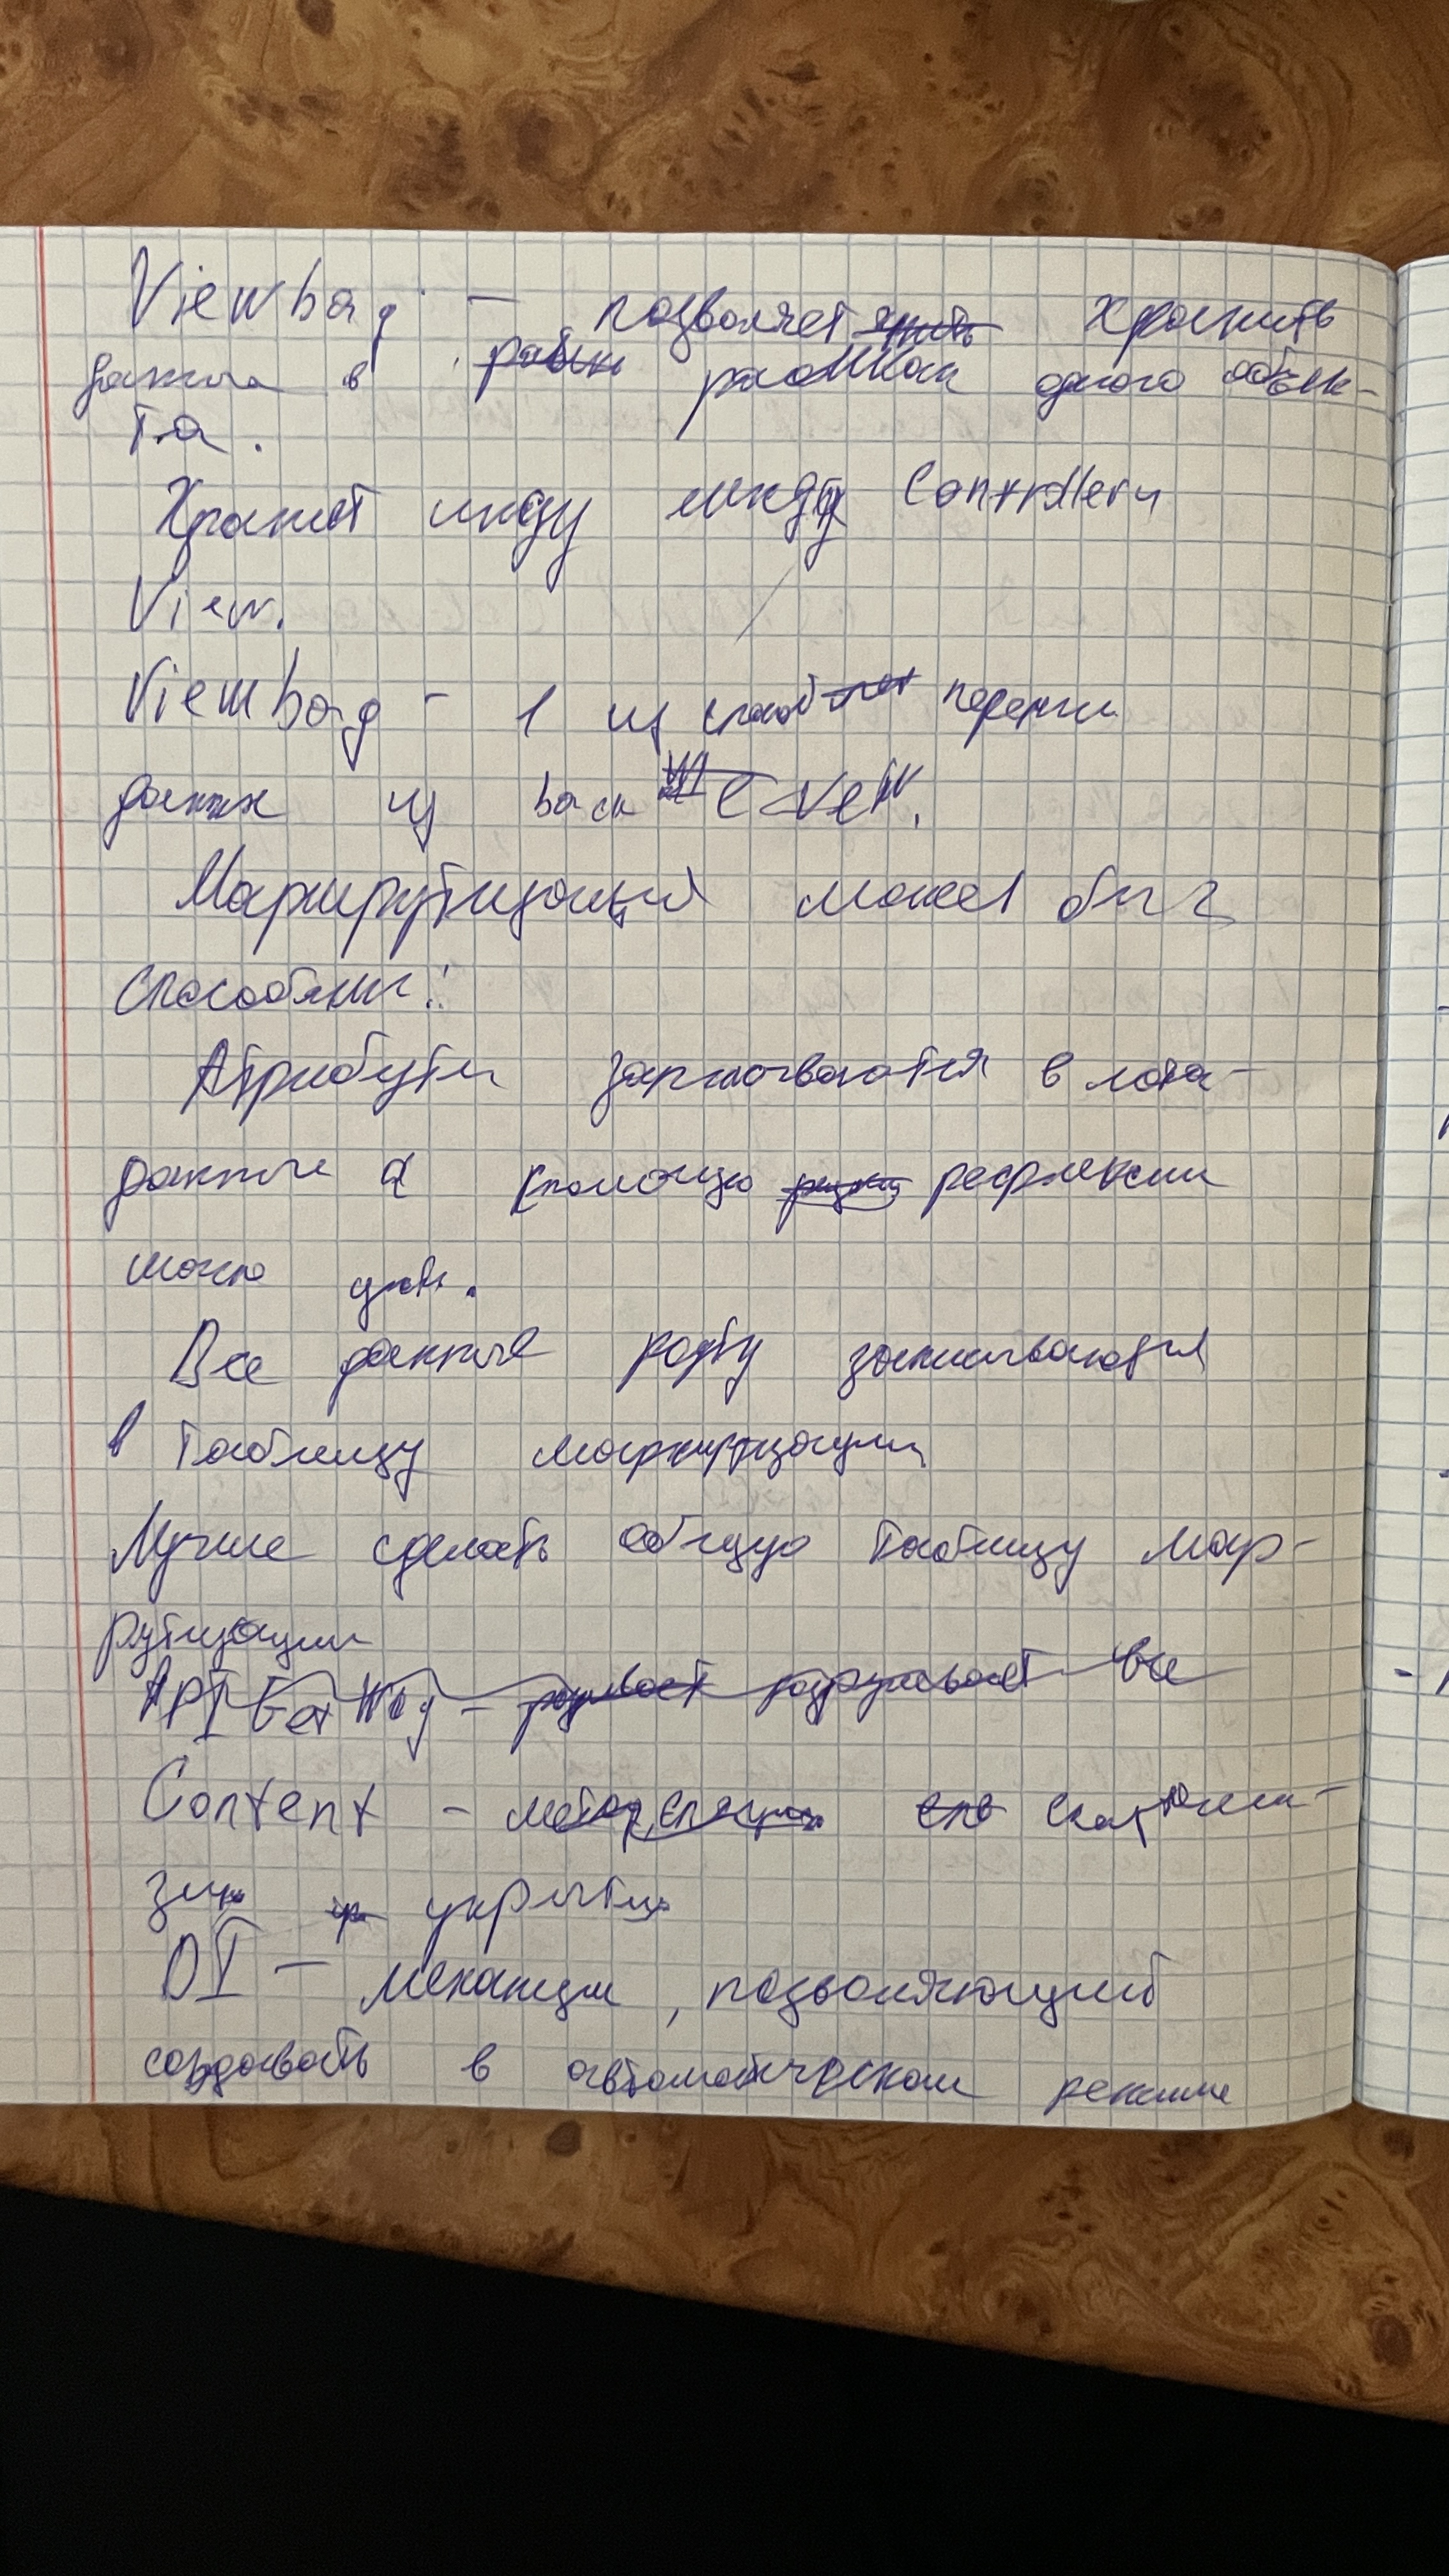 Viewbag - позволяет хранить
данные в рамках одного объек-
та.
Хранит между Controller и
View.
Viewbag - 1 из способ передачи
данных из back с View.
Маршрутизаций может быть
способами:
Атрибуты записываются в мета-
данные с помощью рефлексии
можно
Все данные записываются
в таблицу маршрутизации
Лучше сделать общую таблицу мар-
рутизации
API GetWay - все
Content -
DI - механизм, позволяющий
создавать в автоматическом режиме